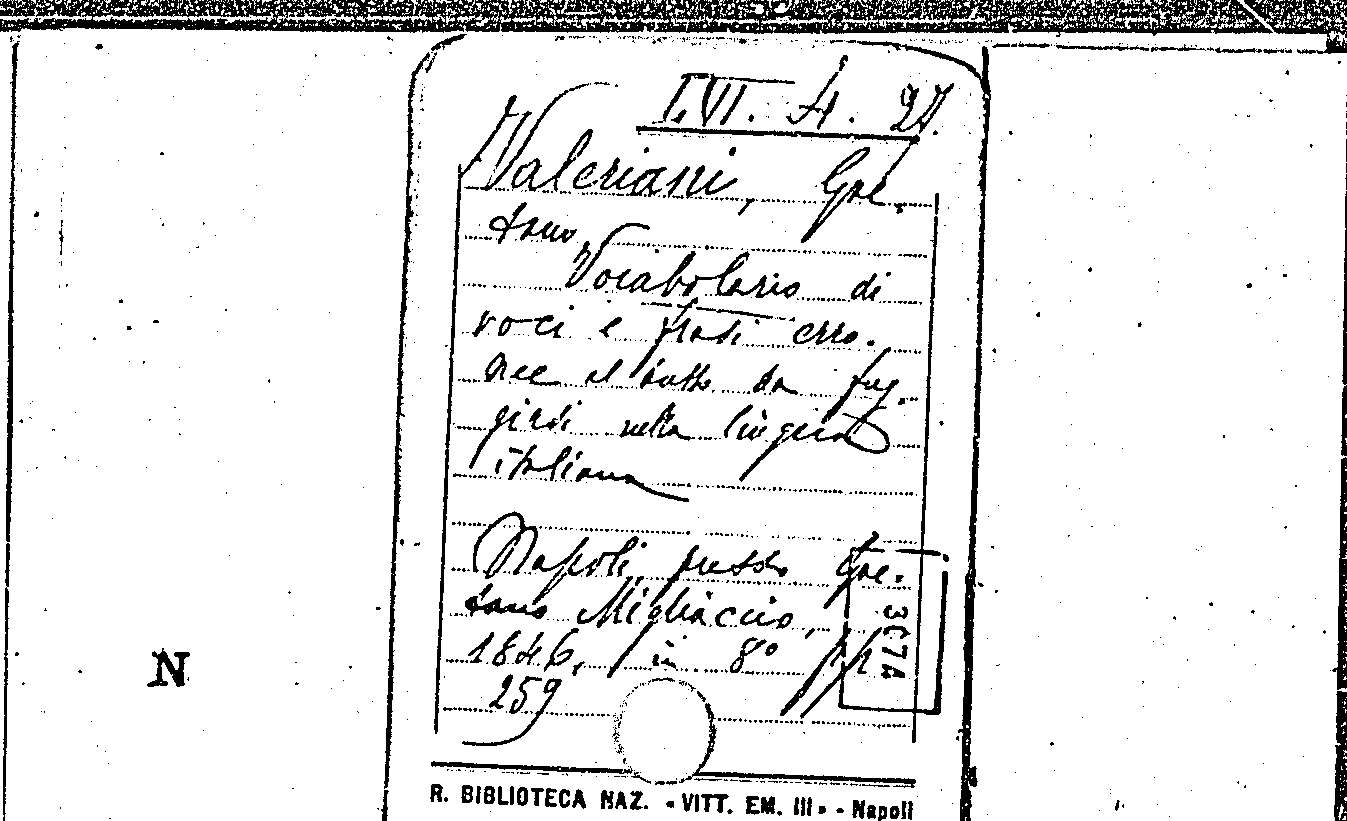 I. VI. A. 27.
Valeriani, Gae.
tano
Vocabolario di
voci e frasi erro.
nee al tutto da fug.
girsi nella lingua
italiana
Napoli, presso Gae.
tano Migliaccio,
1846, in 8° pp
259
3C7A
N
R. BIBLIOTECA NAZ. «VITT. EM. III» - Napoli